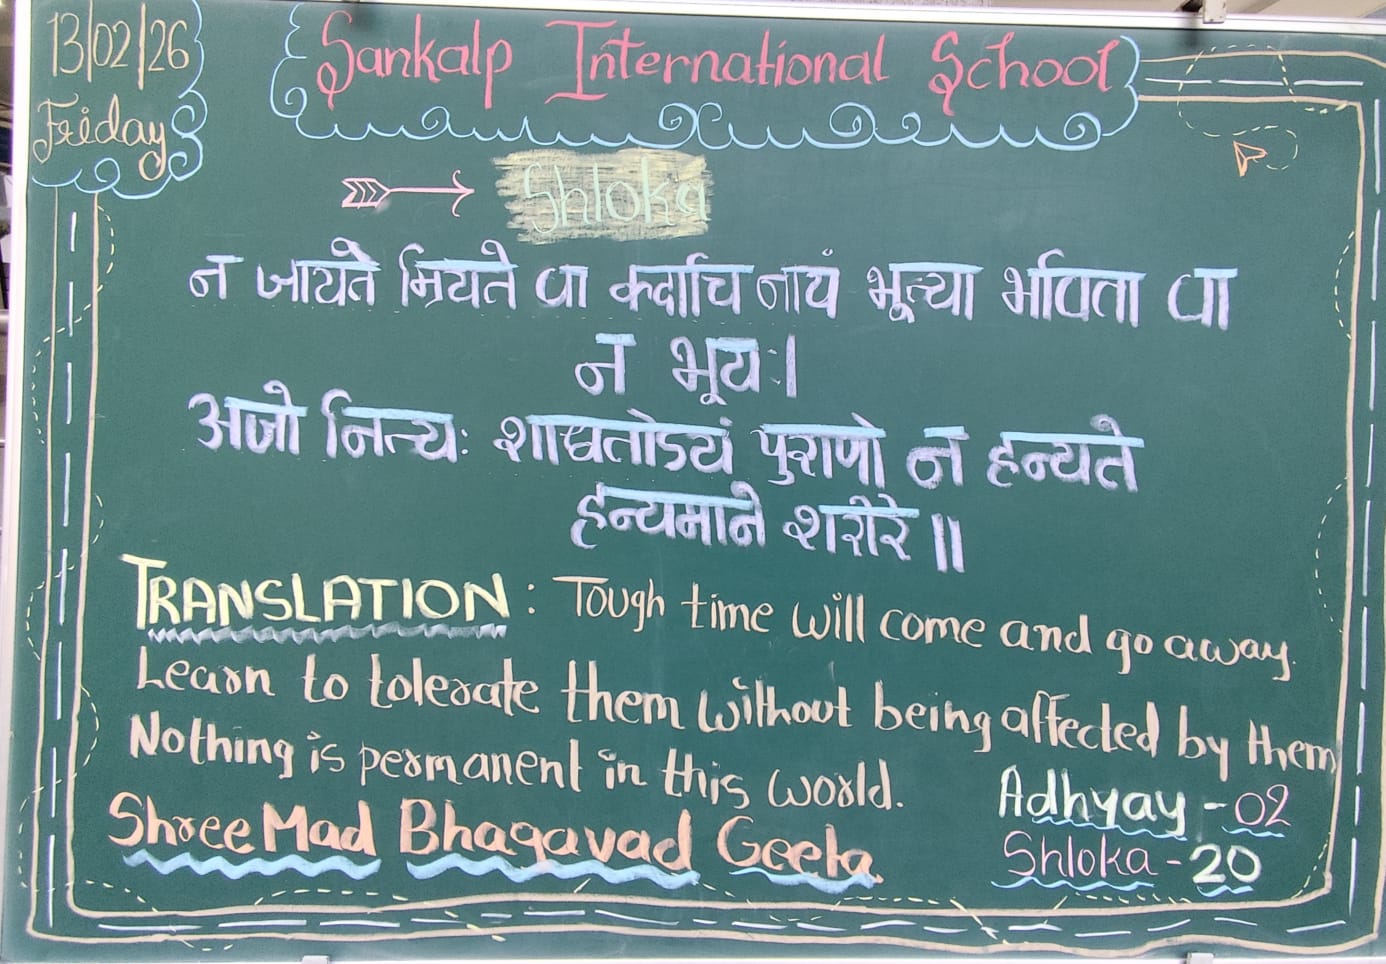 13/02/26
Friday
Sankalp International School
Shloka
न जायते म्रियते वा कदाचि नायं भूत्या भविता वा
न भूयः।
अजो नित्यः शाश्वतोऽयं पुराणो न हन्यते
हन्यमाने शरीरे॥
TRANSLATION: Tough time will come and go away.
Learn to tolerate them without being affected by them
Nothing is permanent in this world.
Adhyay - 02
Shree Mad Bhagavad Geeta.
Shloka - 20